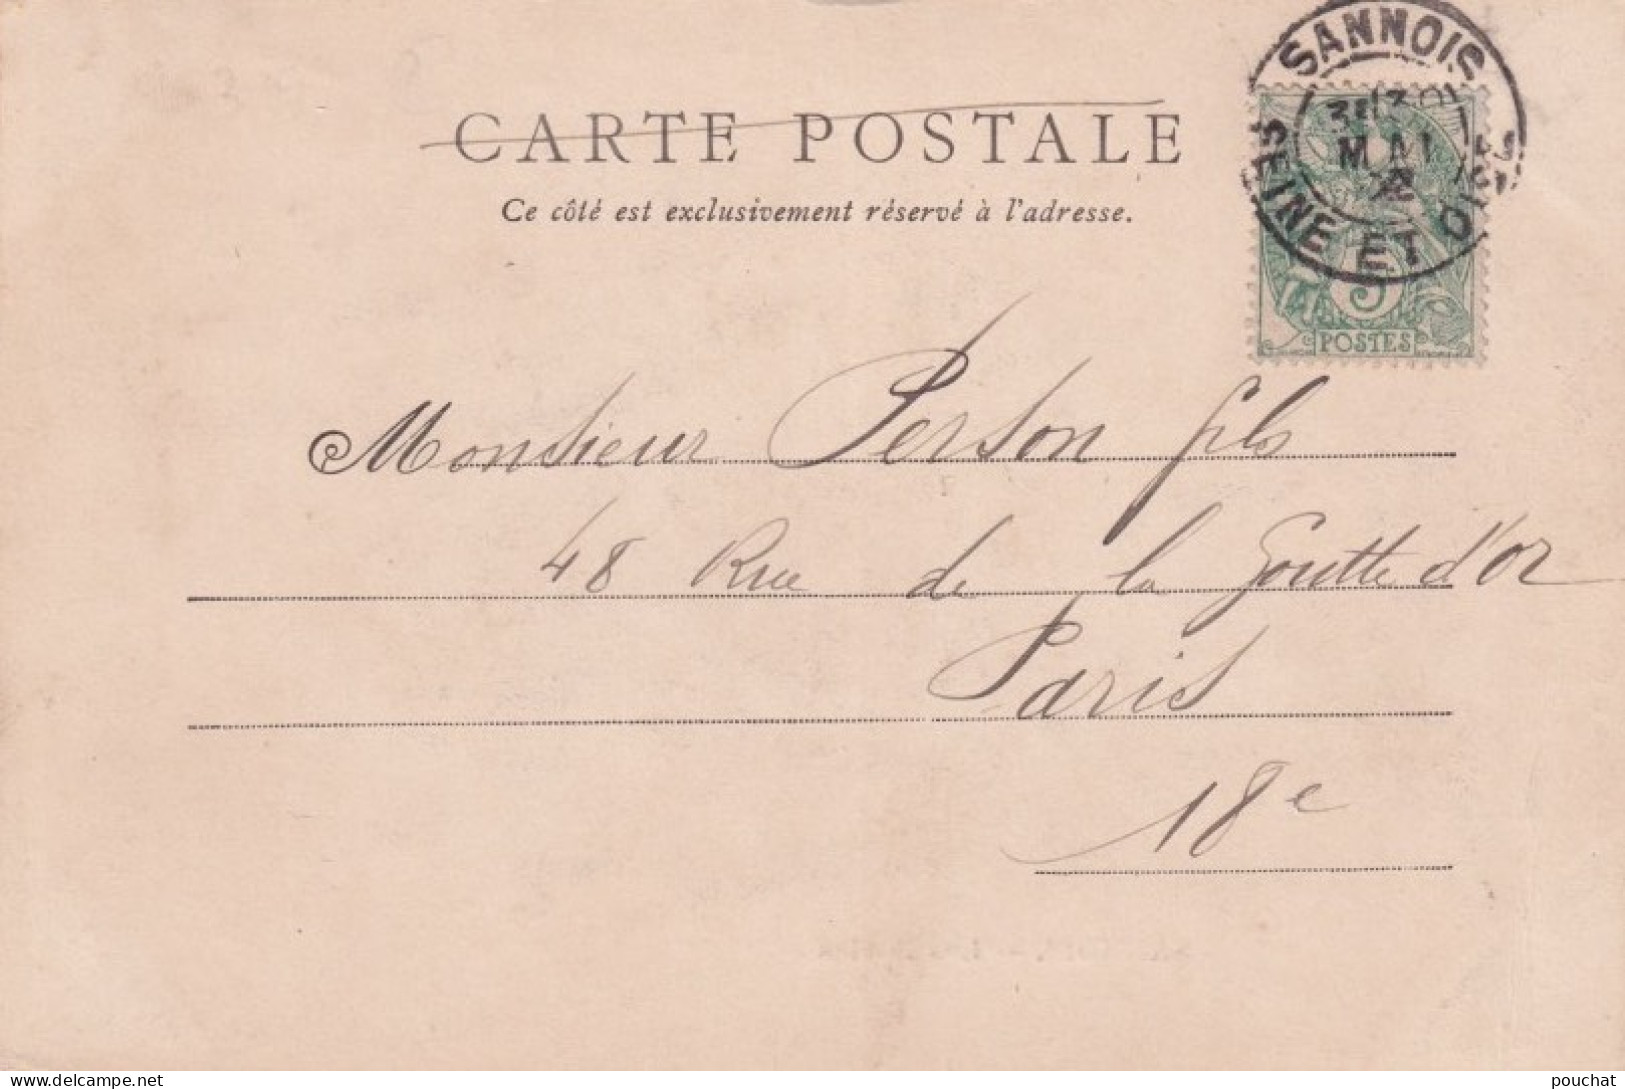 CARTE POSTALE
Ce côté est exclusivement réservé à l'adresse.
SANNOIS
MAI
SEINE ET OISE
5
POSTES
Monsieur Person fils
48 Rue de la Goutte d'or
Paris
18e
www.delcampe.net
pouchat